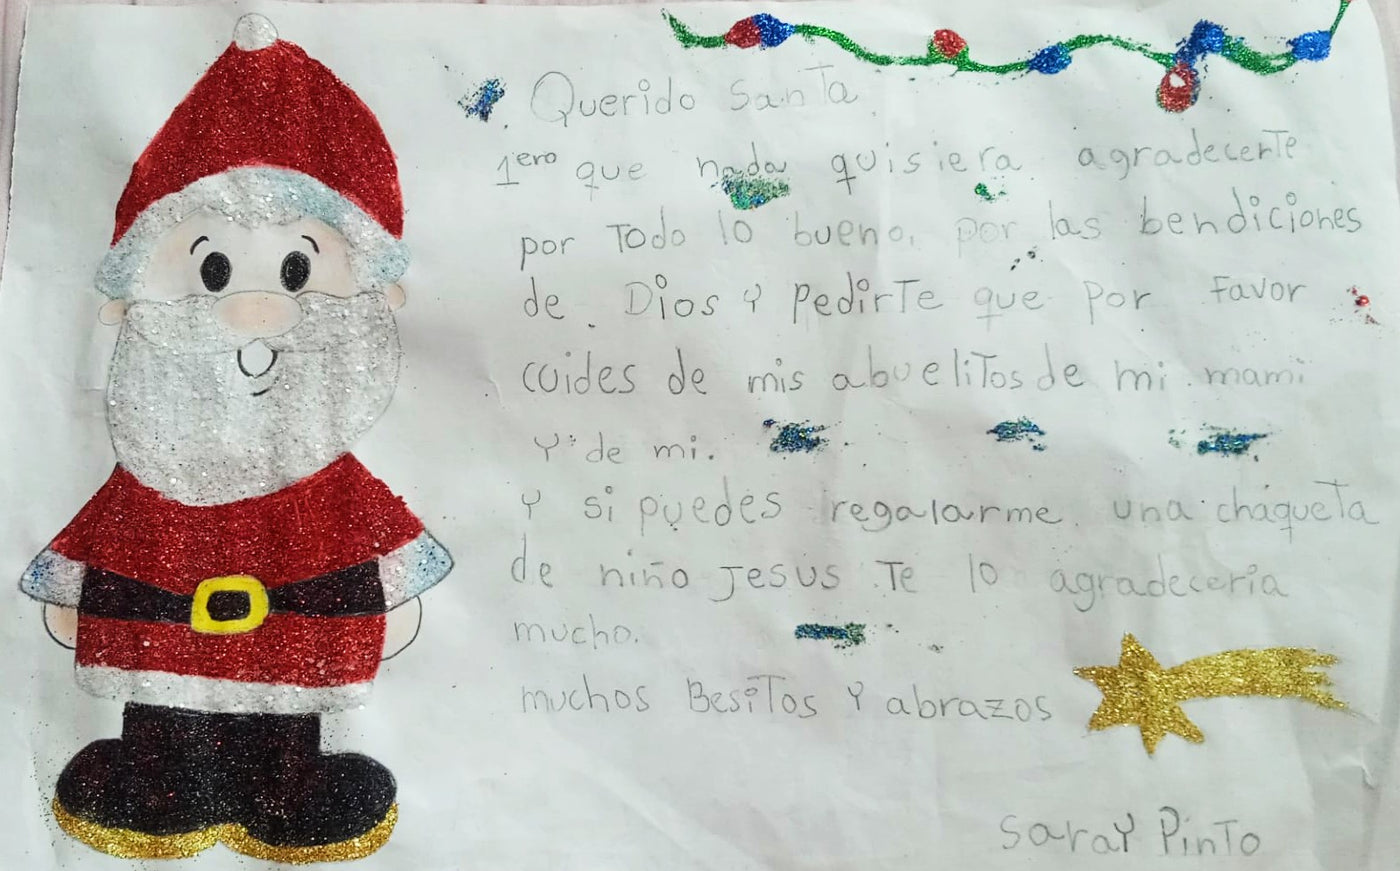 Querido Santa
1ero que nada quisiera agradecerte
por Todo lo bueno, por las bendiciones
de Dios Y PedirTe que Por Favor
cuides de mis abueliTos de mi mami
Y de mi.
Y si puedes regalarme una chaqueTa
de niño Jesus Te lo agradeceria
mucho.
muchos BesiTos Y abrazos
SaraY PinTo